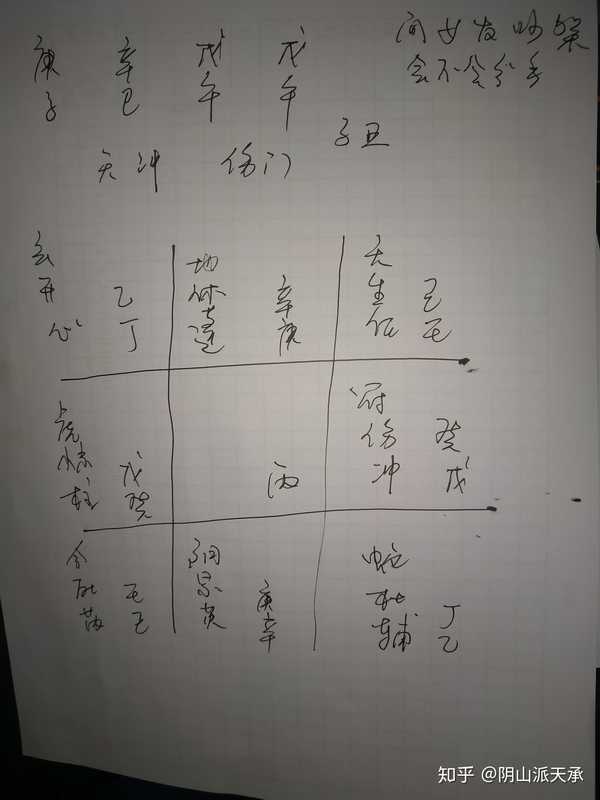 问女友吵架
会不会分手
庚 辛 戊 戊
子 巳 午 午
子丑
天冲 伤门
玄开心 乙丁
地休蓬 辛庚
天生任 己壬
虎惊柱 戊癸
丙
符伤冲 癸戊
合死芮 壬己
阴景英 庚辛
蛇杜辅 丁乙
知乎 @阴山派天承